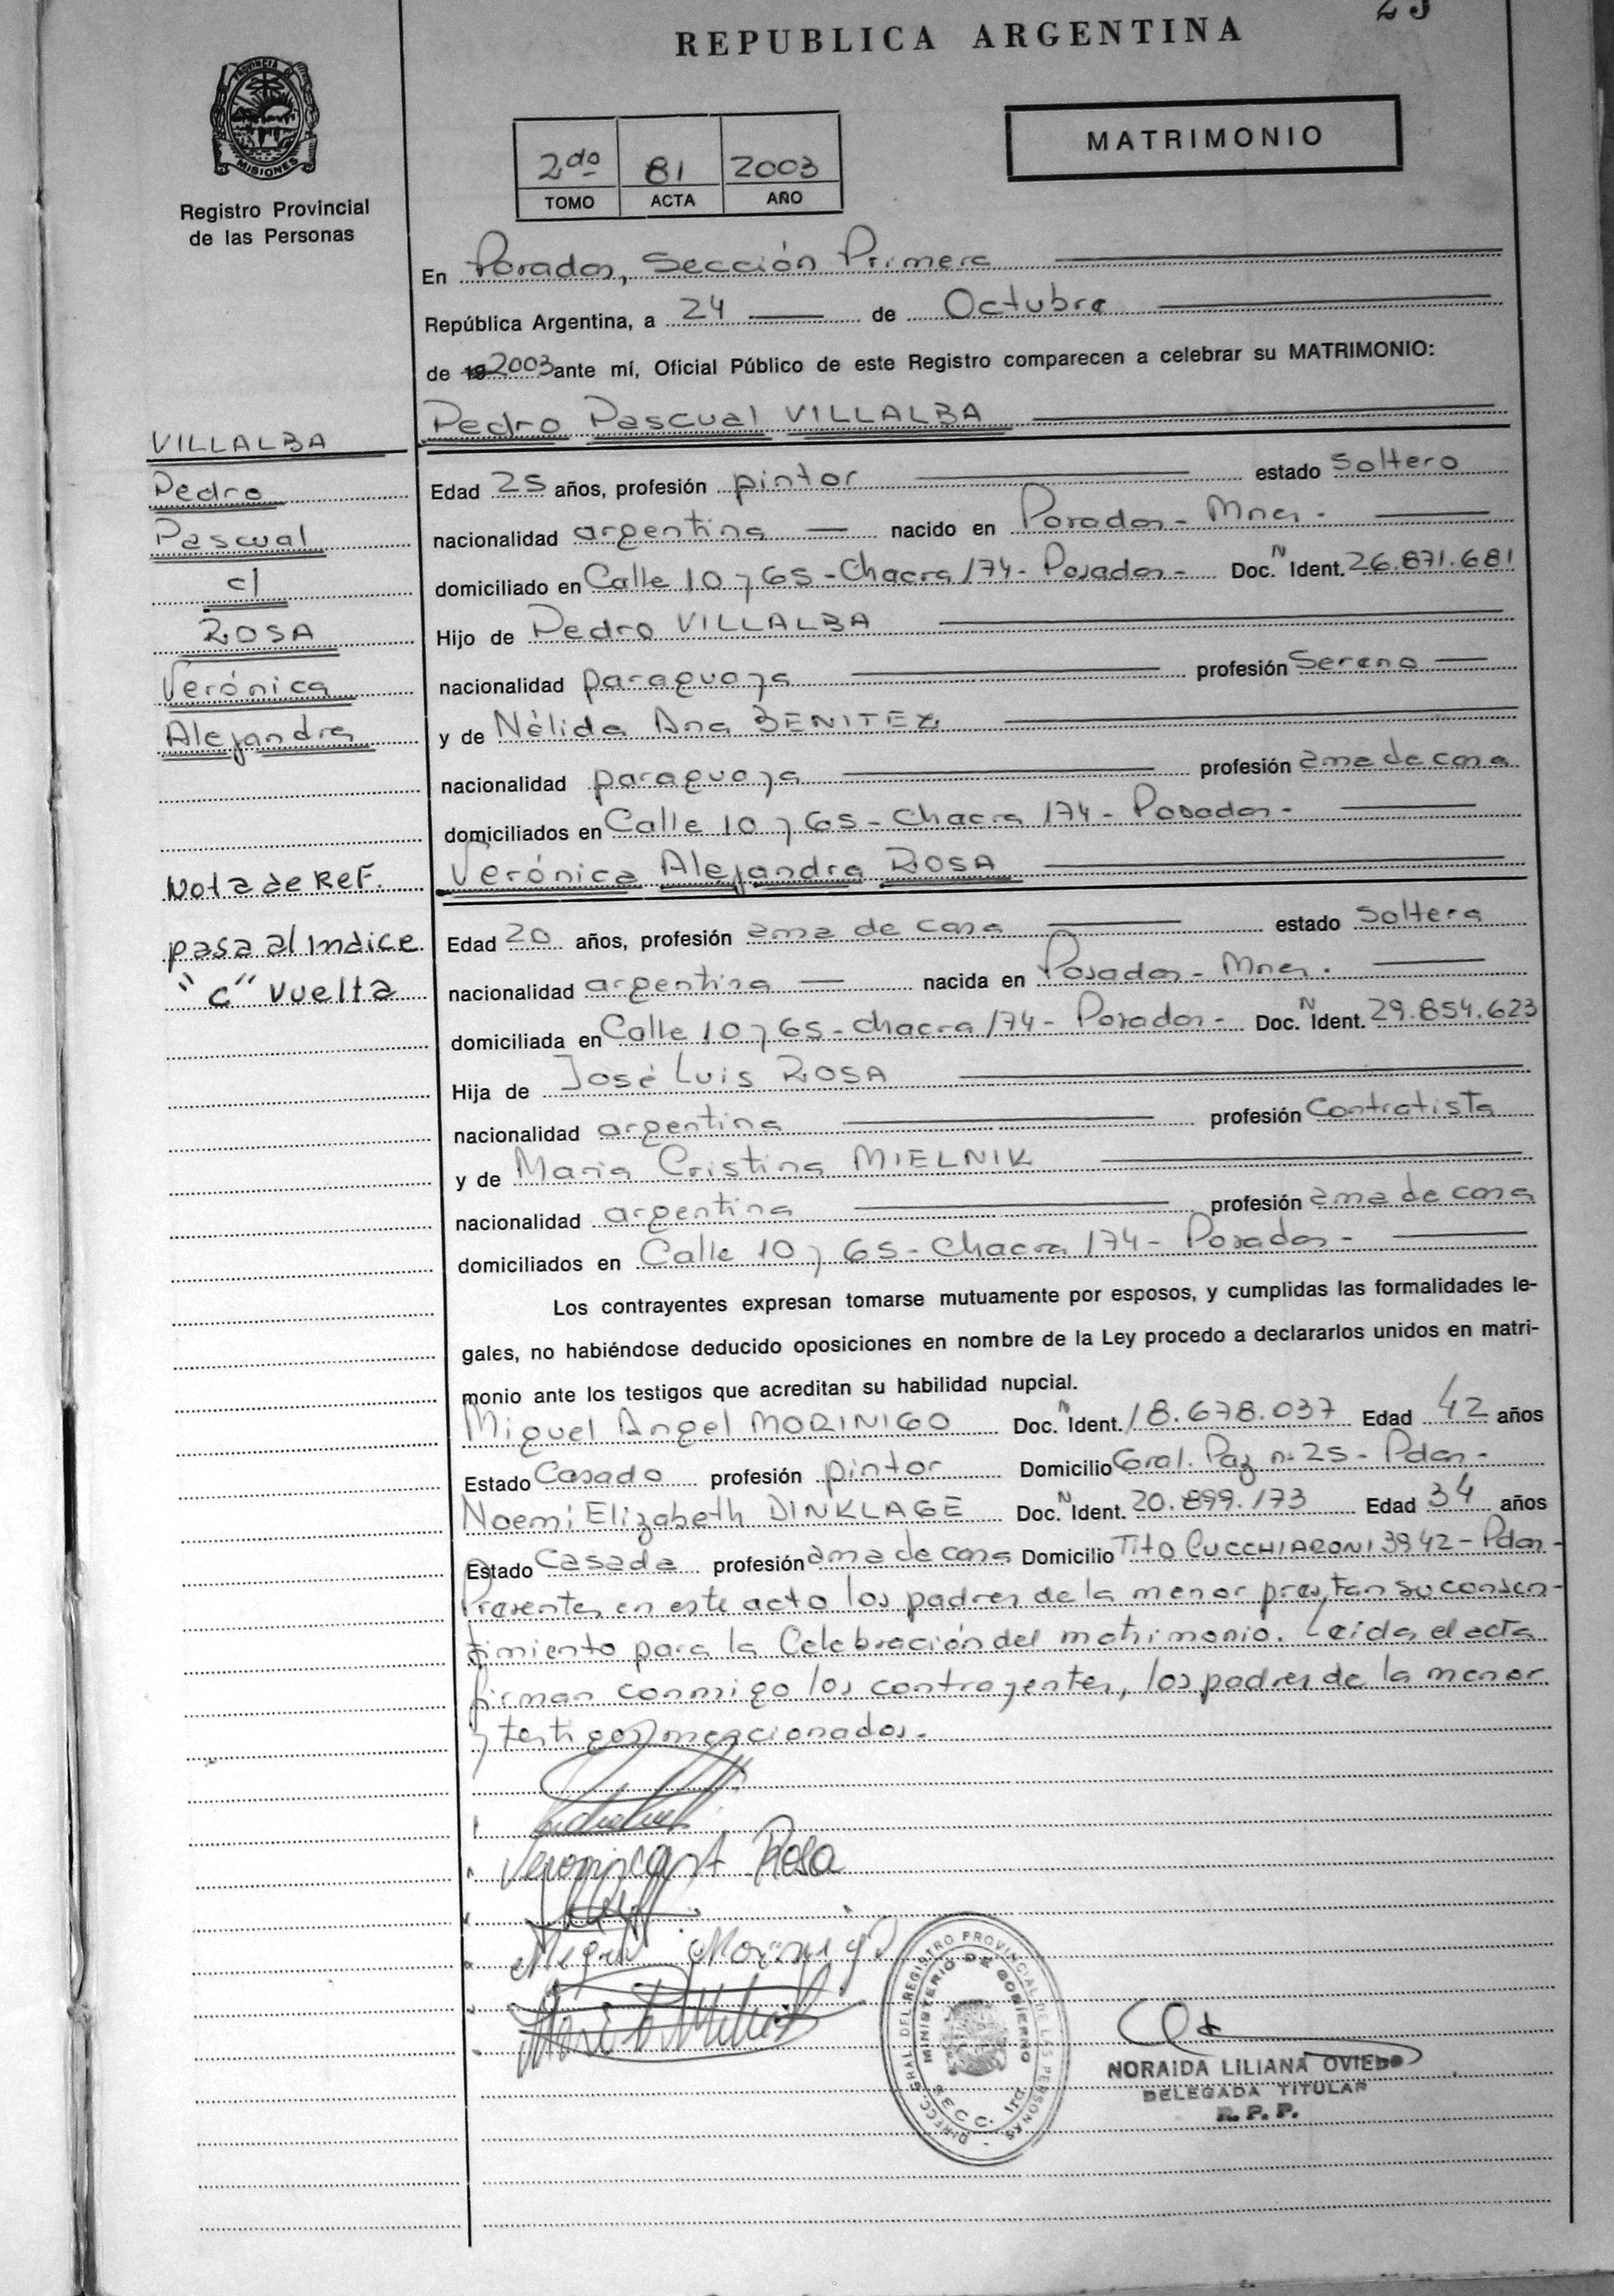 REPUBLICA ARGENTINA
PROVINCIA DE
MISIONES
Registro Provincial
de las Personas
MATRIMONIO
2do 81 2003
TOMO ACTA AÑO
En Posadas, Sección Primera
República Argentina, a 24 de Octubre
de 19 2003 ante mí, Oficial Público de este Registro comparecen a celebrar su MATRIMONIO:
Pedro Pascual VILLALBA
VILLALBA
Pedro
Pascual
c/
ROSA
Verónica
Alejandra
Edad 25 años, profesión pintor estado Soltero
nacionalidad argentina nacido en Posadas - Mnes.
domiciliado en Calle 10 y 65 - Chacra 174 - Posadas - Doc. N Ident. 26.871.681
Hijo de Pedro VILLALBA
nacionalidad paraguaya profesión Sereno
y de Nélida Ana BENITEZ
nacionalidad paraguaya profesión ama de casa
domiciliados en Calle 10 y 65 - Chacra 174 - Posadas -
Verónica Alejandra ROSA
Nota de Ref.
pasa al Indice
"C" vuelta
Edad 20 años, profesión ama de casa estado Soltera
nacionalidad argentina nacida en Posadas - Mnes.
domiciliada en Calle 10 y 65 - Chacra 174 - Posadas - Doc. N Ident. 29.854.623
Hija de José Luis ROSA
nacionalidad argentina profesión Contratista
y de Maria Cristina MIELNIK
nacionalidad argentina profesión ama de casa
domiciliados en Calle 10 y 65 - Chacra 174 - Posadas -
Los contrayentes expresan tomarse mutuamente por esposos, y cumplidas las formalidades le-
gales, no habiéndose deducido oposiciones en nombre de la Ley procedo a declararlos unidos en matri-
monio ante los testigos que acreditan su habilidad nupcial.
Miguel Angel MORINIGO Doc. N Ident. 18.678.037 Edad 42 años
Estado Casado profesión pintor Domicilio Gral. Paz nº 25 - Pdas -
Noemi Elizabeth DINKLAGE Doc. N Ident. 20.899.173 Edad 34 años
Estado Casada profesión ama de casa Domicilio Tito CUCCHIARONI 3942 - Pdas -
Presentes en este acto los padres de la menor prestan su consen-
timiento para la Celebración del matrimonio. Leida el acta
firman conmigo los contrayentes, los padres de la menor
y testigos mencionados.
Veronica A Rosa
Miguel Morinigo
DIRECC. GRAL. DEL REGISTRO PROVINCIAL DE LAS PERSONAS
MINISTERIO DE GOBIERNO
NORAIDA LILIANA OVIEDO
DELEGADA TITULAR
R. P. P.